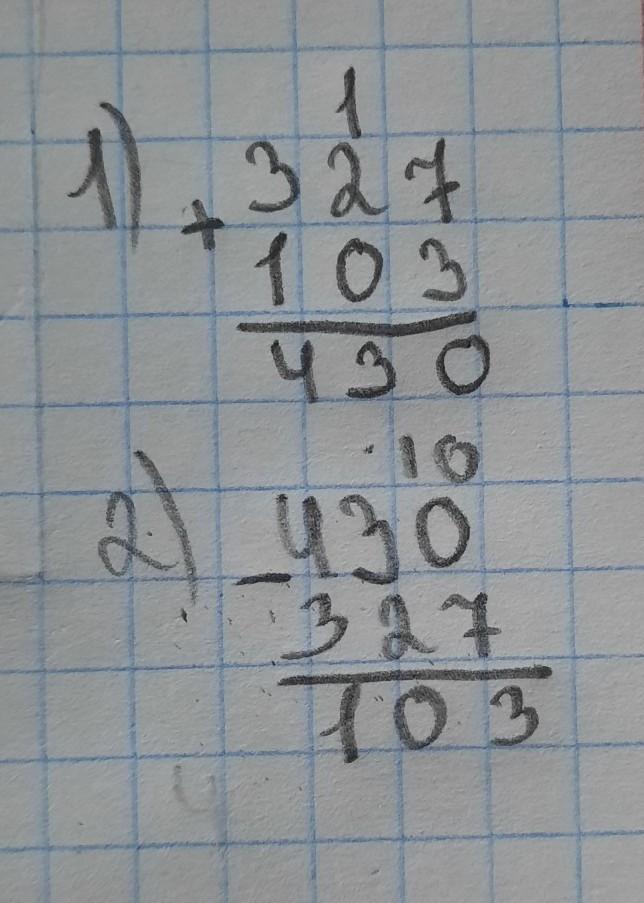 1
1) 327
+
103
430
10
2) 430
-
327
103